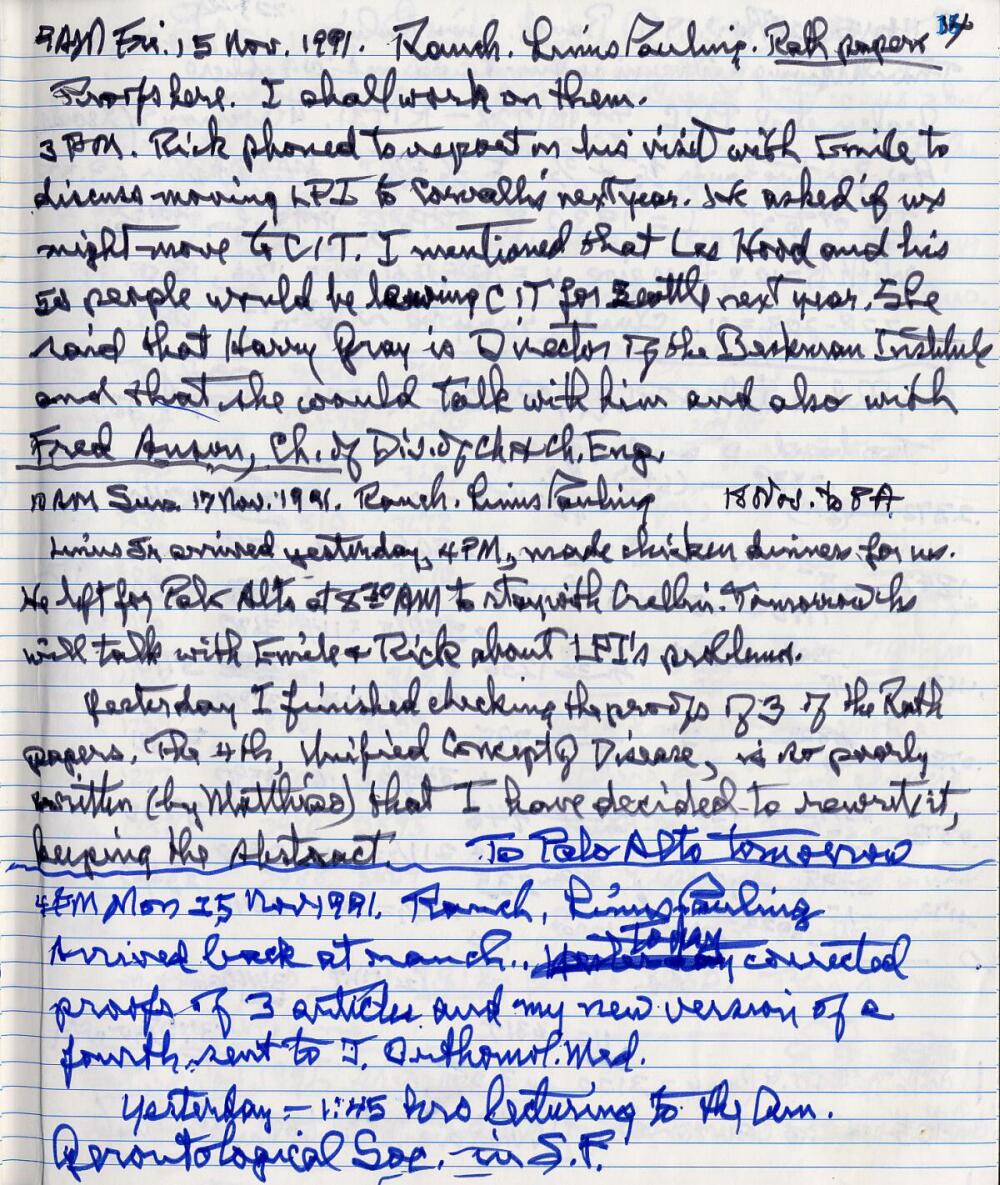 9 AM Fri. 15 Nov. 1991. Ranch. Linus Pauling. Rath papers
Proofs here. I shall work on them.
3 PM. Rick phoned to report on his visit with Emile to
discuss moving LPI to Corvallis next year. He asked if we
might move to CIT. I mentioned that Lee Hood and his
50 people would be leaving CIT for Seattle next year. She
said that Harry Gray is Director of the Beckman Institute
and that she would talk with him and also with
Fred Anson, Ch. of Div. of Ch & Ch. Eng.
10 AM Sun. 17 Nov. 1991. Ranch. Linus Pauling 18 Nov. to PA
Linus Jr. arrived yesterday, 4 PM, made chicken dinner for us.
He left for Palo Alto at 8:30 AM to stay with Crellin. Tomorrow he
will talk with Emile & Rick about LPI's problems.
Yesterday I finished checking the proofs of 3 of the Rath
papers. The 4th, Unified Concept of Disease, is so poorly
written (by Matthias) that I have decided to rewrite it,
keeping the Abstract. To Palo Alto tomorrow
4 PM Mon 25 Nov 1991. Ranch, Linus Pauling
Today
Arrived back at ranch.. corrected
proofs of 3 articles and my new version of a
fourth sent to J. Orthomol. Med.
Yesterday – 1:45 hrs lecturing to the Am.
Gerontological Soc. in S.F.